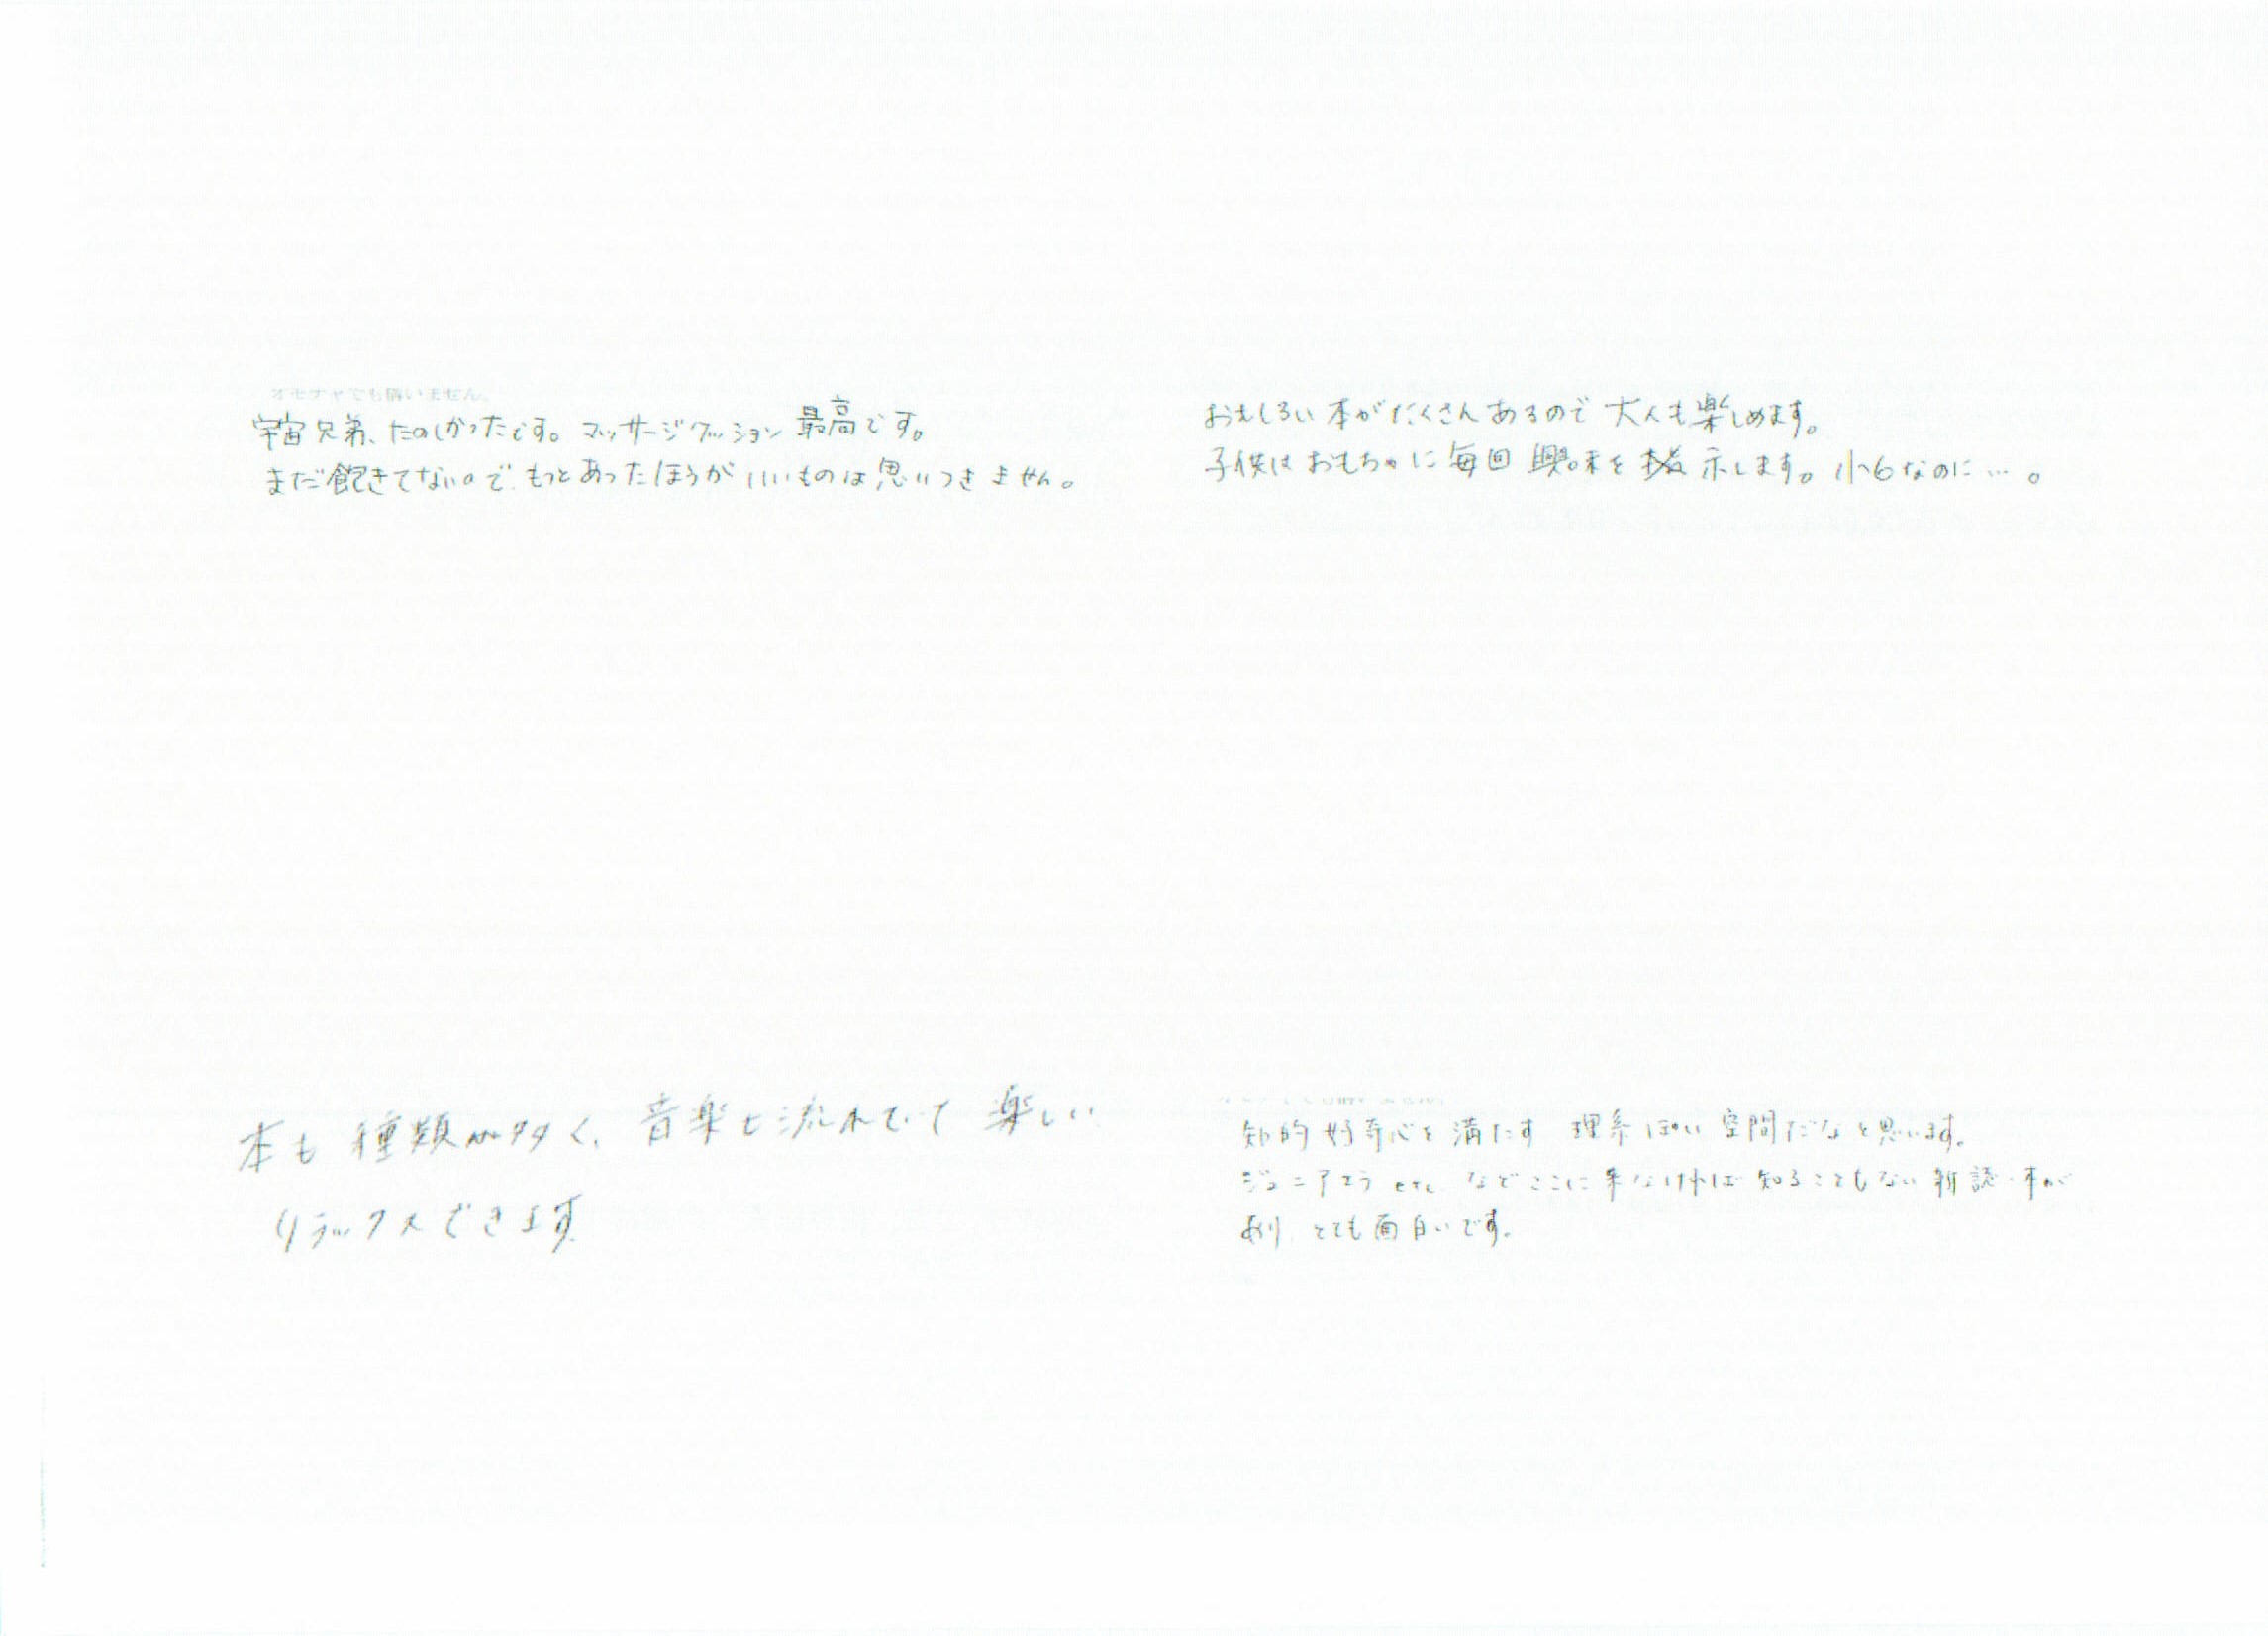 オモチャでも構いません。
宇宙兄弟、たのしかったです。マッサージクッション最高です。
まだ飽きてないので、もっとあったほうがいいものは思いつきません。
おもしろい本がたくさんあるので大人も楽しめます。
子供はおもちゃに毎回興味を示します。小6なのに…。
本も種類が多く、音楽も流れていて楽しい
リラックスできます
知的好奇心を満たす理系ぽい空間だなと思います。
ジュニアエラetc などここに来なければ知ることもない新誌・本が
あり、とても面白いです。